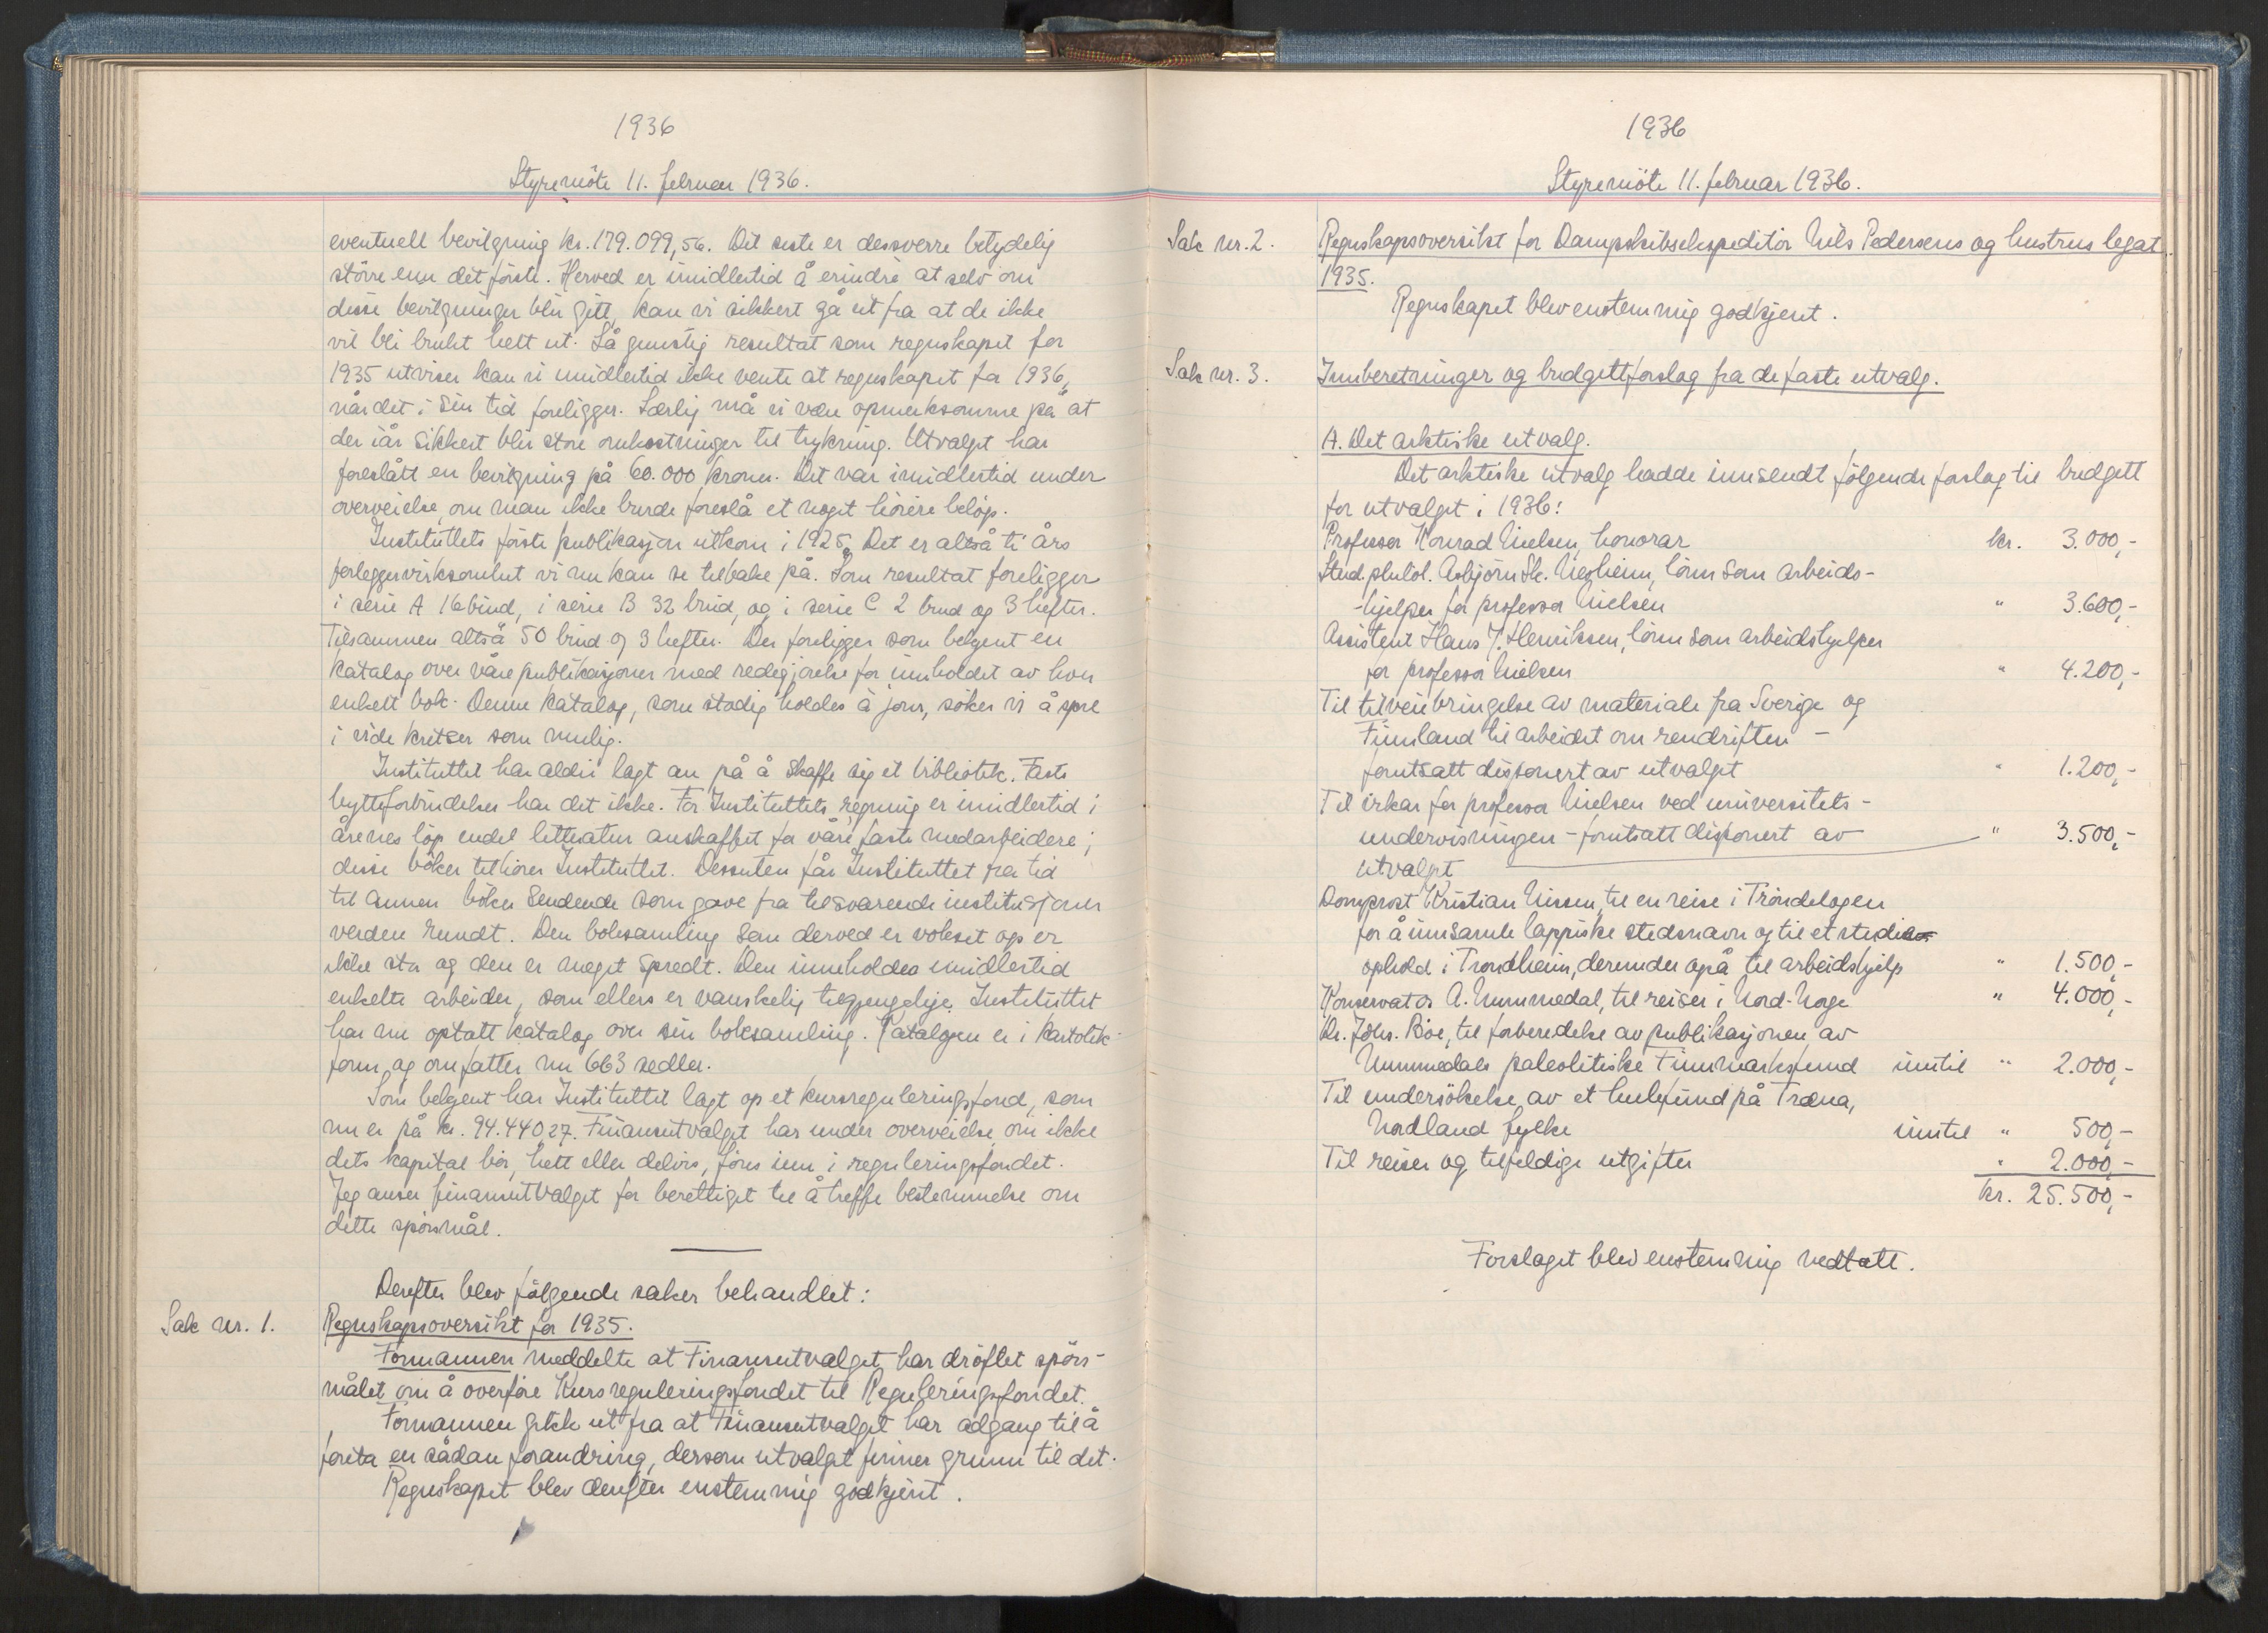 1936
Styremöte 11. februar 1936.
eventuell bevilgning kr. 179.099,56. Det siste er dessverre betydelig
större enn det förste. Herved er imidlertid å erindre at selv om
disse bevilgninger blir gitt, kan vi sikkert gå ut fra at de ikke
vil bli brukt helt ut. Så gunstig resultat som regnskapet for
1935 utviser kan vi imidlertid ikke vente at regnskapet for 1936,
når det i sin tid foreligger. Særlig må vi være opmerksomme på at
der iår sikkert blir store omkostninger til trykning. Utvalget har
foreslått en bevilgning på 60.000 kroner. Det var imidlertid under
overveielse, om man ikke burde foreslå et noget höiere belöp.
Instituttets förste publikasjon utkom i 1925. Det er altså ti års
forleggervirksomhet vi nu kan se tilbake på. Som resultat foreligger
i serie A 16 bind, i serie B 32 bind, og i serie C 2 bind og 3 hefter.
Tilsammen altså 50 bind og 3 hefter. Der foreligger som bekjent en
katalog over våre publikasjoner med redegjörelse for innholdet av hver
enkelt bok. Denne katalog, som stadig holdes à jour, söker vi å spre
i vide kretser som mulig.
Instituttet har aldri lagt an på å skaffe sig et bibliotek. Faste
bytteforbindelser har det ikke. For Instituttets regning er imidlertid i
årenes löp endel litteratur anskaffet for våre faste medarbeidere;
disse böker tilhörer Instituttet. Dessuten får Instituttet fra tid
til annen böker sendende som gave fra tilsvarende institusjoner
verden rundt. Den boksamling som derved er vokset op er
ikke stor og den er meget spredt. Den inneholder imidlertid
enkelte arbeider, som ellers er vanskelig tilgjengelige. Instituttet
har nu optatt katalog over sin boksamling. Katalogen er i kartotek-
form, og omfatter nu 663 sedler.
Som bekjent har Instituttet lagt op et kursreguleringsfond, som
nu er på kr. 94.440,27. Finansutvalget har under overveielse om ikke
dets kapital bör, helt eller delvis, föres inn i reguleringsfondet.
Jeg anser finansutvalget for berettiget til å treffe bestemmelse om
dette spörsmål.
Derefter blev fölgende saker behandlet:
Sak nr. 1.
Regnskapsoversikt for 1935.
Formannen meddelte at Finansutvalget har dröftet spörs-
målet om å overföre Kursreguleringsfondet til Reguleringsfondet.
Formannen gikk ut fra at Finansutvalget har adgang til å
foreta en sådan forandring, dersom utvalget finner grunn til det.
Regnskapet blev derefter enstemmig godkjent.
1936
Styremöte 11. februar 1936.
Sak nr. 2.
Regnskapsoversikt for Dampskibsekspeditör Nils Pedersens og hustrus legat
1935.
Regnskapet blev enstemmig godkjent.
Sak nr. 3.
Innberetninger og budgettforslag fra de faste utvalg.
A. Det arktiske utvalg.
Det arktiske utvalg hadde innsendt fölgende forslag til budgett
for utvalget i 1936:
Professor Konrad Nielsen, honorar kr. 3.000,-
Stud. philol. Asbjörn Sk. Nesheim, lönn som arbeids-
-hjelper for professor Nielsen " 3.600,-
Assistent Hans J. Henriksen, lönn som arbeidshjelper
for professor Nielsen " 4.200,-
Til tilveiebringelse av materiale fra Sverige og
Finnland til arbeidet om rendriften -
forutsatt disponert av utvalget " 1.200,-
Til vikar for professor Nielsen ved universitets-
undervisningen - forutsatt disponert av " 3.500,-
utvalget
Domprost Kristian Nissen, til en reise i Tröndelagen
for å innsamle lappiske stedsnavn og til et studie
ophold i Trondheim, derunder også til arbeidshjelp " 1.500,-
Konservator A. Nummedal, til reiser i Nord-Norge " 4.000,-
Dr. Johs. Böe, til forberedelse av publikasjonen av
Nummedals paleolitiske Finnmarksfund inntil " 2.000,-
Til undersökelse av et hulefund på Træna,
Nordland fylke inntil " 500,-
Til reiser og tilfeldige utgifter " 2.000,-
kr. 25.500,-
Forslaget blev enstemmig vedtatt.